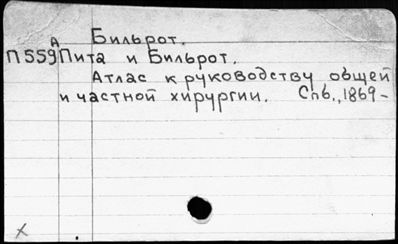 А Бильрот.
П559 Пита и Бильрот.
Атлас к руководству общей
и частной хирургии. Спб., 1869-
х